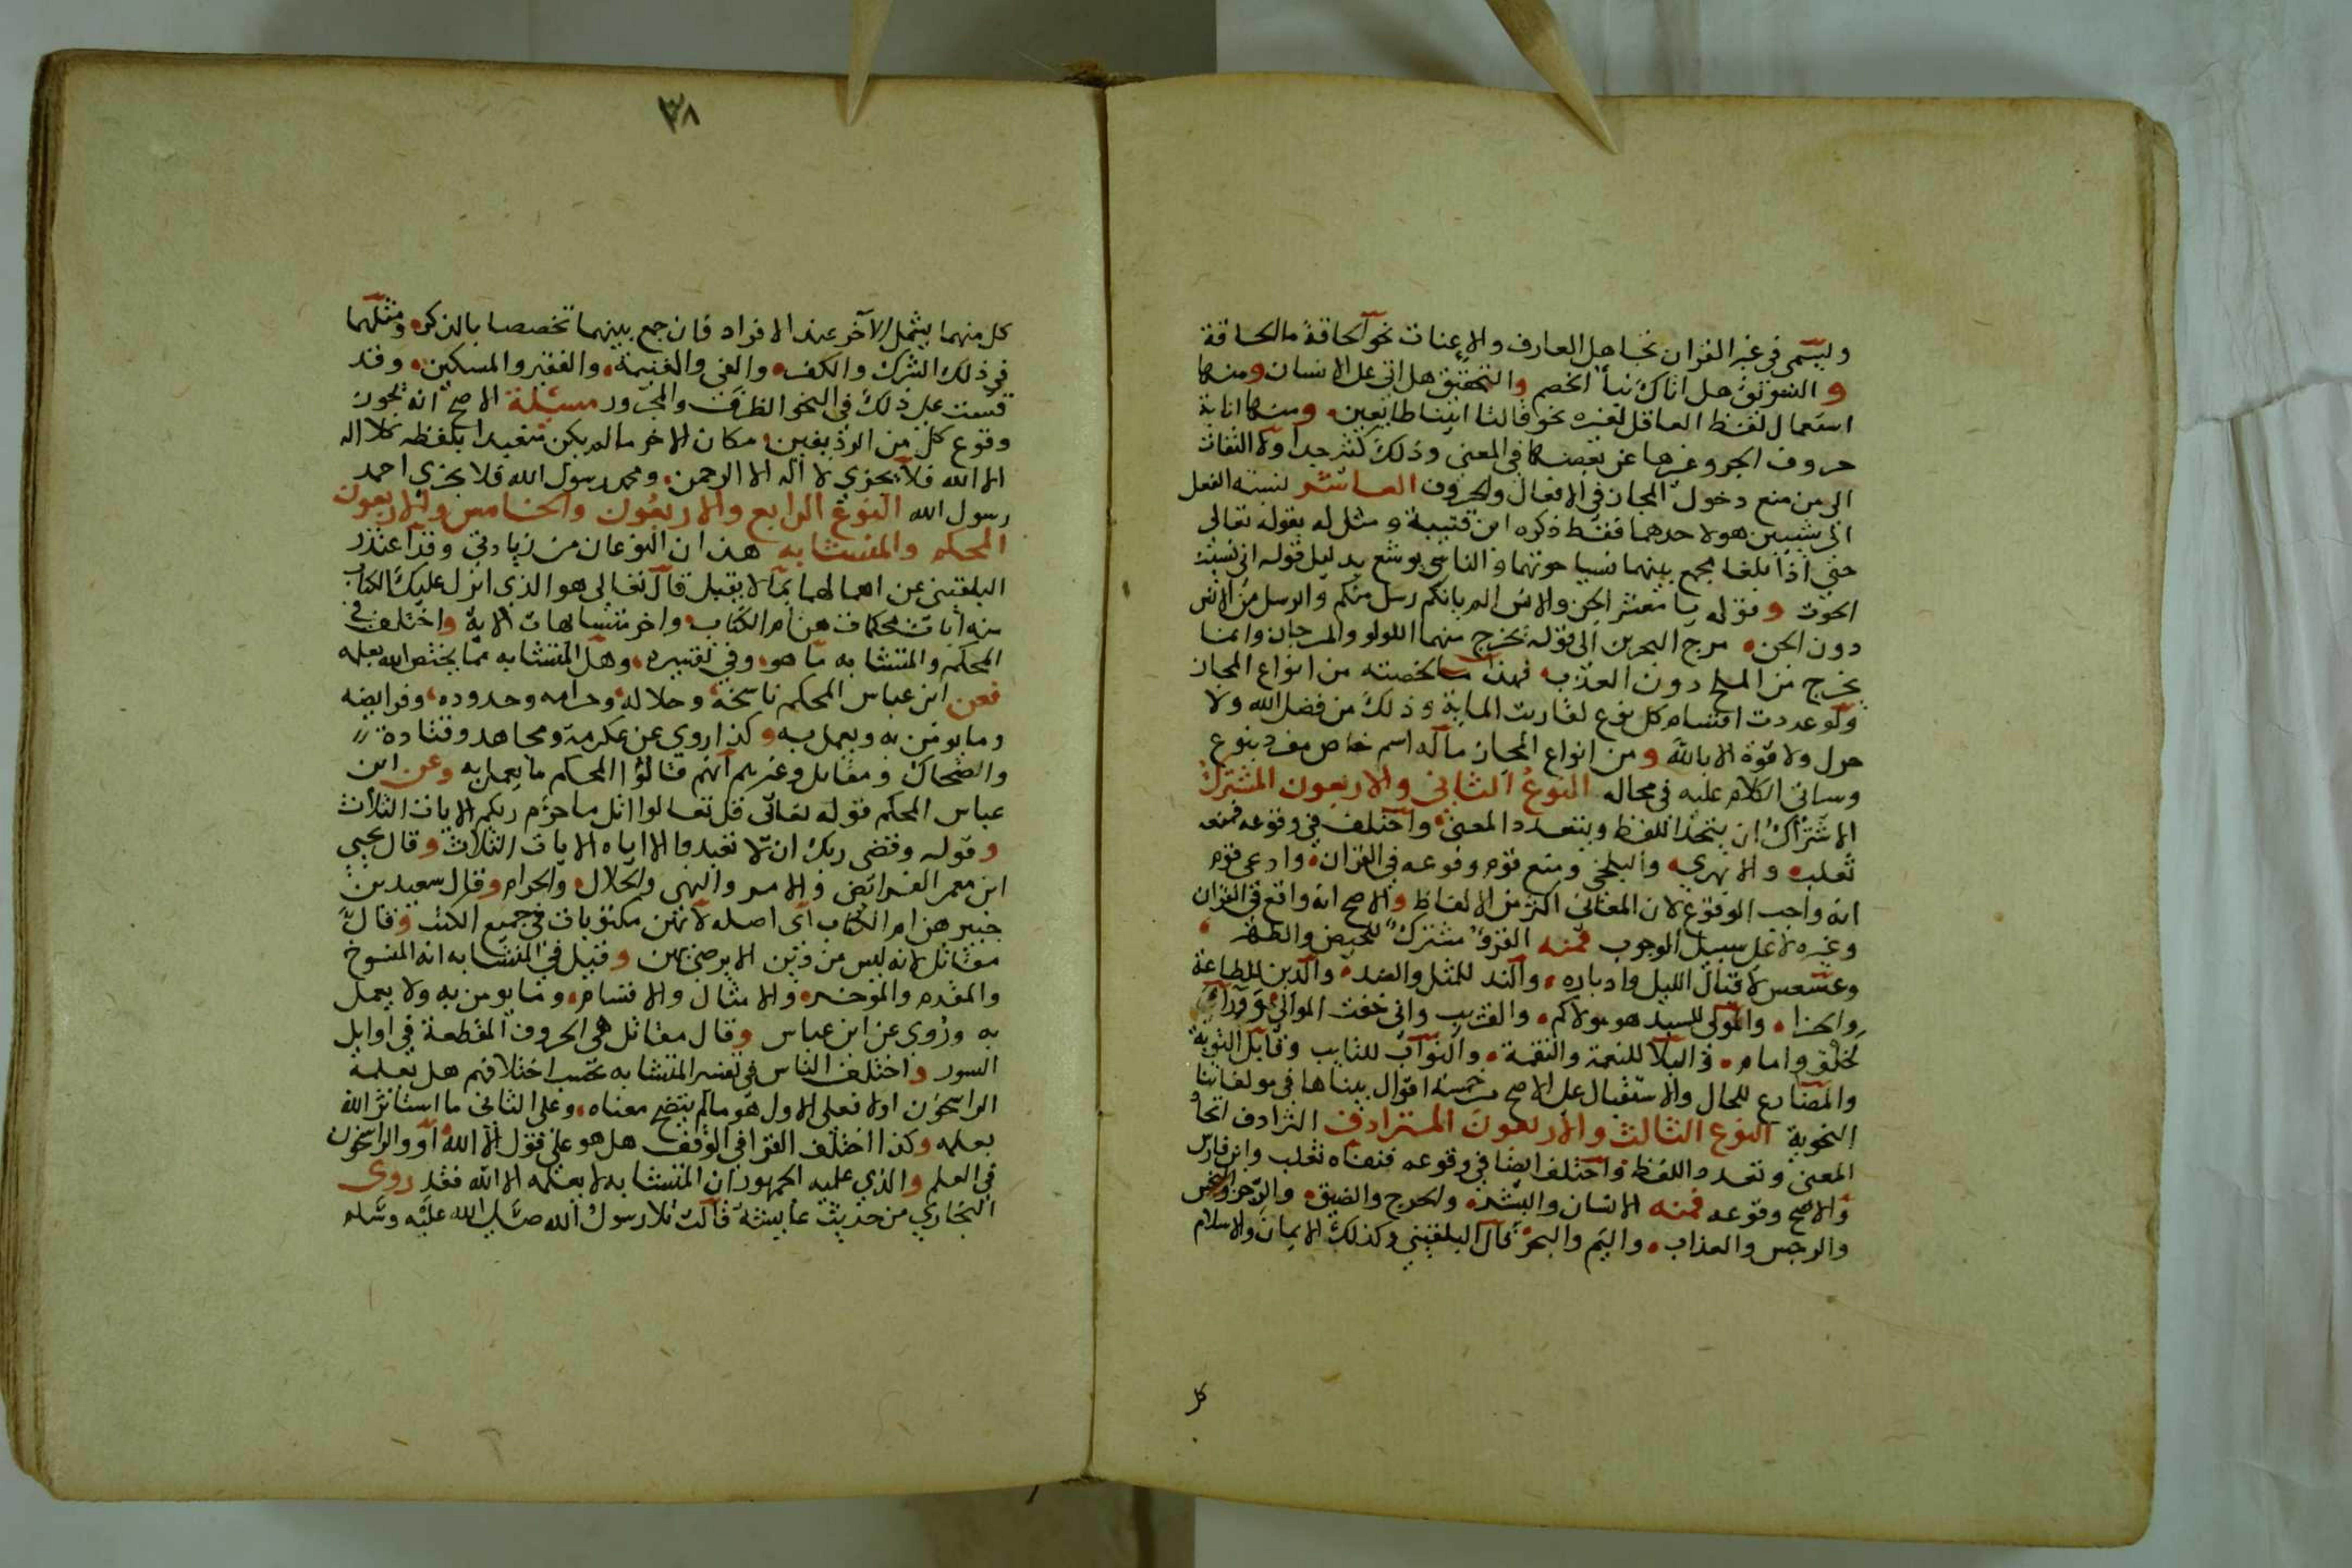 ويسمى في غير القران تجاهل العارف والاعنات نحو الحاقة ما الحاقة
و التشويق هل اتاك نبأ الخصم والتحقيق هل اتى على الانسان ومنها
استعمال لفظ العاقل لغيره نحو قالتا اتينا طايعين ومنها انابة
حروف الجر وغيرها عن بعضها في المعنى وذلك كثير جدا ولا التفات
الى من منع دخول المجاز في الافعال والحروف العاشر لنسبة الفعل
الى شيين هو لاحدهما فقط ذكره ابن قتيبة ومثل له بقوله تعالى
حتى اذا بلغا مجمع بينهما نسيا حوتهما والناسي يوشع بدليل قوله اني نسيت
الحوت وقوله يا معشر الجن والانس الم ياتكم رسل منكم والرسل من الانس
دون الجن مرج البحرين الى قوله يخرج منهما اللولو والمرجان وانما
يخرج من الملح دون العذب فهذا ما لخصته من انواع المجاز
ولو عددت اقسام كل نوع لقاربت الماية وذلك من فضل الله ولا
حول ولا قوة الا بالله ومن انواع المجاز ما له اسم خاص مفرد بنوع
وسياتي الكلام عليه في محاله النوع الثاني والاربعون المشترك
الاشتراك ان يتحد اللفظ ويتعدد المعنى واختلف في وقوعه فمنعه
ثعلب والابهري والبلخي ومنع قوم وقوعه في القران وادعى قوم
انه واجب الوقوع لان المعاني اكثر من الالفاظ والاصح انه واقع في القران
وغيره لا على سبيل الوجوب فمنه القرؤ مشترك للحيض والطهر
وعسعس لاقبال الليل وادباره والند للمثل والضد والدين للطاعة
والجزا والمولى للسيد هو مولاكم والقريب واني خفت الموالي وورآء
لخلف وامام والبلا للنعمة والنقمة والتواب للتايب وقابل التوبة
والمضارع للحال والاستقبال على الاصح من خمسة اقوال بيناها في مولفاتنا
النحوية النوع الثالث والاربعون المترادف الترادف اتحاد
المعنى وتعدد اللفظ واختلف ايضا في وقوعه فنفاه ثعلب وابن فارس
والاصح وقوعه فمنه الانسان والبشر والحرج والضيق والرجز والرجس
والرجس والعذاب واليم والبحر قال البلقيني وكذلك الايمان والاسلام
كل
٣٨
كل منهما يشمل الآخر عند الافراد فان جمع بينهما تخصصا بالذكر ومثلهما
في ذلك الشرك والكفر والفي والغنيمة والفقير والمسكين وقد
قست على ذلك في النحو الظرف والمجرور مسئلة الاصح انه يجوز
وقوع كل من الرديفين مكان الاخر ما لم يكن تعبدا بلفظه كلا اله
الا الله فلا يجزي لا اله الا الرحمن ومحمد رسول الله فلا يجزي احمد
رسول الله النوع الرابع والاربعون والخامس والاربعون
المحكم والمتشابه هذان النوعان من زيادتي وقد اعتذر
البلقيني عن اهمالهما بما لا يقبل قال تعالى هو الذي انزل عليك الكتاب
منه ايات محكمات هن ام الكتاب واخر متشابهات الاية واختلف في
المحكم والمتشابه ما هو وفي تفسيره وهل المتشابه مما يختص الله بعلمه
فعن ابن عباس المحكم ناسخه وحلاله وحرامه وحدوده وفرايضه
وما يومن به ويعمل به وكذا روي عن عكرمة ومجاهد وقتادة
والضحاك ومقاتل وغيرهم انهم قالوا المحكم ما يعمل به وعن ابن
عباس المحكم قوله تعالى قل تعالوا اتل ما حرم ربكم الايات الثلاث
وقوله وقضى ربك ان لا تعبدوا الا اياه الايات الثلاث وقال يحيى
ابن معمر الفرائض والامر والنهي والحلال والحرام وقال سعيد بن
جبير هن ام الكتاب اى اصله لانهن مكتوبات في جميع الكتب وقال
مقاتل لانه ليس من دين الا يرضى بهن وقيل في المتشابه انه المنسوخ
والمقدم والموخر والامثال والاقسام وما يومن به ولا يعمل
به وروي عن ابن عباس وقال مقاتل هي الحروف المقطعة في اوايل
السور واختلف الناس في تفسير المتشابه بحسب اختلافهم هل يعلمه
الراسخون او لا فعلى الاول هو ما لم يتضح معناه وعلى الثاني ما استاثر الله
بعلمه وكذا اختلف القرا في الوقف هل هو على قول الا الله او والراسخون
في العلم والذي عليه الجمهور ان المتشابه لا يعلمه الا الله فقد روى
البخاري من حديث عايشة قالت تلا رسول الله صلى الله عليه وسلم